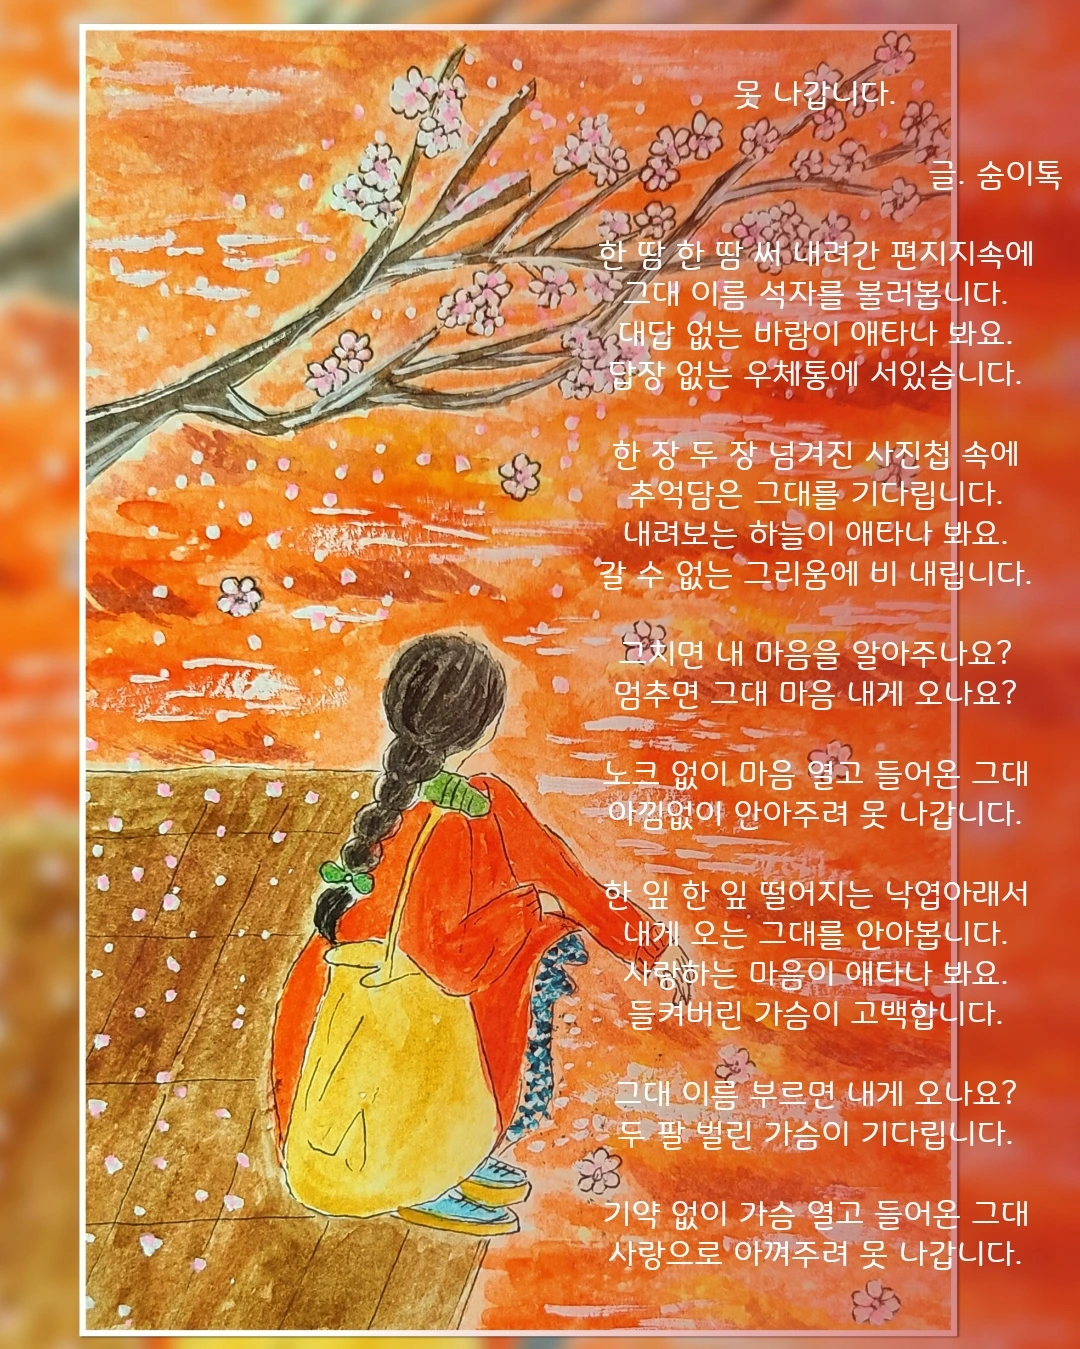 못 나갑니다.
글. 숨이톡
한 땀 한 땀 써 내려간 편지지속에
그대 이름 석자를 불러봅니다.
대답 없는 바람이 애타나 봐요.
답장 없는 우체통에 서있습니다.
한 장 두 장 넘겨진 사진첩 속에
추억담은 그대를 기다립니다.
내려보는 하늘이 애타나 봐요.
갈 수 없는 그리움에 비 내립니다.
그치면 내 마음을 알아주나요?
멈추면 그대 마음 내게 오나요?
노크 없이 마음 열고 들어온 그대
아낌없이 안아주려 못 나갑니다.
한 잎 한 잎 떨어지는 낙엽아래서
내게 오는 그대를 안아봅니다.
사랑하는 마음이 애타나 봐요.
들켜버린 가슴이 고백합니다.
그대 이름 부르면 내게 오나요?
두 팔 벌린 가슴이 기다립니다.
기약 없이 가슴 열고 들어온 그대
사랑으로 아껴주려 못 나갑니다.